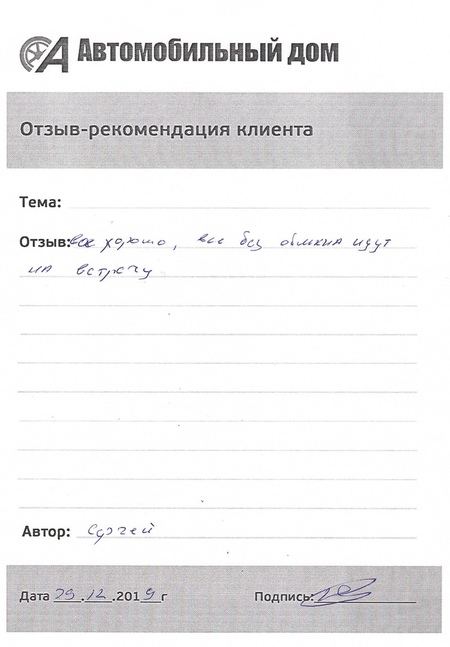 Автомобильный дом
Отзыв-рекомендация клиента
Тема:
Отзыв: все хорошо, все без обмана идут
на встречу
Автор: Сергей
Дата 29.12.2019 г Подпись: